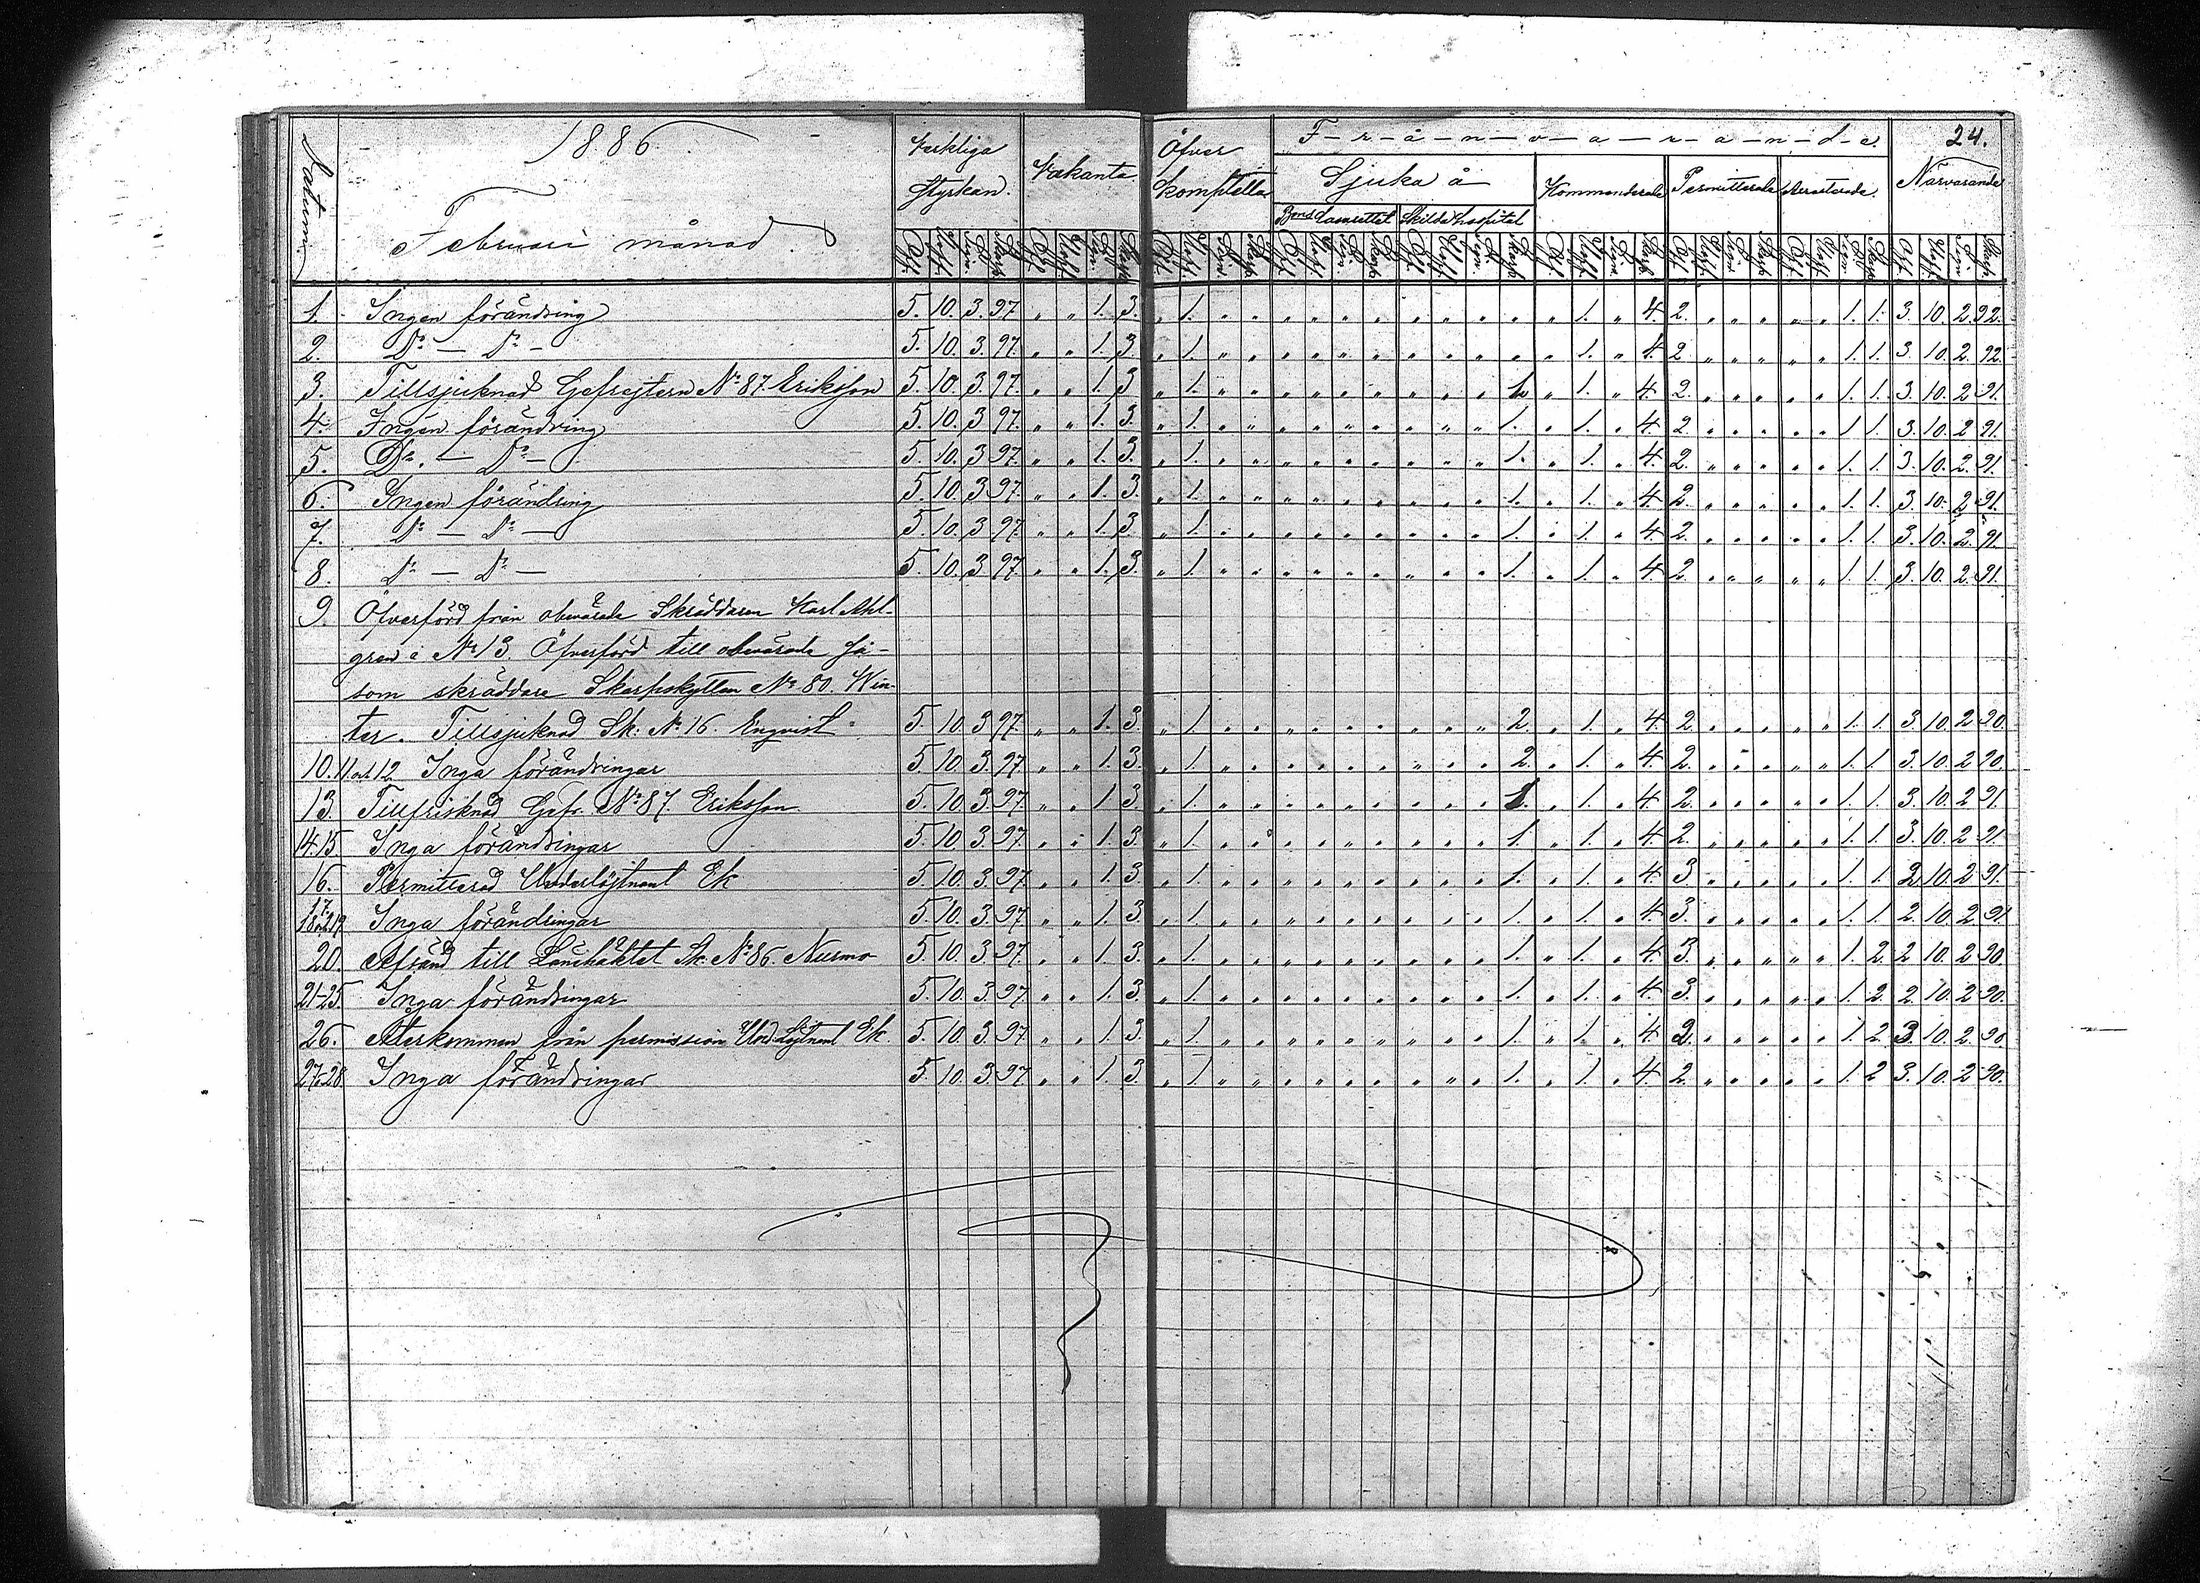 Datum
1886
Februari månad
Verkliga Styrkan.
Vakanta
Öfver komptella
F-r-å-n-v-a-r-a-n-d-e
Sjuka å
Lasarettet
Skilda hospital
Kommenderade
Permitterade
Arresterade
24.
Närvarande
1. Ingen förändring 5. 10. 3. 97. „ „ 1. 3. „ 1. „ „ „ „ „ „ „ „ „ „ „ 1. „ 4. 2. „ „ „ „ „ 1. 1. 3. 10. 2. 92.
2. Do — Do — 5. 10. 3. 97. „ „ 1. 3 „ 1. „ „ „ „ „ „ „ „ „ „ „ 1. „ 4. 2 „ „ „ „ „ 1. 1. 3. 10. 2. 92.
3. Tillsjuknad Gefrejtern No 87. Eriksson 5. 10. 3. 97. „ „ 1. 3 „ 1. „ „ „ „ „ „ „ „ „ 1. „ 1. „ 4 2. „ „ „ „ „ 1. 1. 3. 10. 2 91.
4. Ingen förändring 5. 10. 3 97. „ „ 1. 3. „ 1. „ „ „ „ „ „ „ „ „ 1. „ 1. „ 4. 2 „ „ „ „ „ 1 1. 3. 10. 2 91.
5. Do. — Do — 5. 10. 3 97. „ „ 1. 3. „ 1. „ „ „ „ „ „ „ „ „ 1. „ 1. „ 4. 2. „ „ „ „ „ 1. 1. 3. 10. 2. 91.
6. Ingen förändring 5. 10. 3 97. „ „ 1. 3. „ 1. „ „ „ „ „ „ „ „ „ 1. „ 1. „ 4. 2. „ „ „ „ „ 1. 1. 3. 10. 2 91.
7. Do — Do — 5. 10. 3. 97. „ „ 1. 3 „ 1. „ „ „ „ „ „ „ „ „ 1. „ 1. „ 4 2. „ „ „ „ „ 1. 1 3. 10. 2. 91.
8. Do — Do — 5. 10. 3. 97 „ „ 1. 3. „ 1. „ „ „ „ „ „ „ „ „ 1. „ 1. „ 4 2 „ „ „ „ „ 1. 1. 3. 10. 2. 91.
9. Öfverförd från obevärade Skräddaren Karl Ahl-
gren i No 13 Öfverförd till obevärade så-
som skräddare Skarpskytten No 80. Win-
ter. Tillsjuknad Sk. No 16. Enqvist 5. 10. 3 97. „ „ 1. 3. „ 1. „ „ „ „ „ „ „ „ „ 2. „ 1. „ 4. 2 „ „ „ „ „ 1. 1. 3. 10. 2 90.
10. 11. och 12 Inga förändringar 5. 10. 3. 97 „ „ 1. 3. „ 1. „ „ „ „ „ „ „ „ „ 2. „ 1. „ 4. 2. „ „ „ „ „ 1. 1 3. 10. 2 90.
13. Tillfrisknad Gefr. No 87. Eriksson 5. 10. 3. 97. „ „ 1 3. „ 1. „ „ „ „ „ „ „ „ „ 1. „ 1. „ 4. 2. „ „ „ „ „ 1. 1. 3. 10. 2 91.
14. 15. Inga förändringar 5. 10 3. 97. „ „ 1. 3. „ 1. „ „ „ „ „ „ „ „ „ 1. „ 1. „ 4 2. „ „ „ „ „ 1. 1. 3. 10. 2 91.
16. Permitterad Underlöjtnant Ek 5. 10. 3. 97. „ „ 1 3. „ 1. „ „ „ „ „ „ „ „ „ 1. „ 1. „ 4. 3. „ „ „ „ „ 1. 1. 2 10. 2 91.
17. 18. och 19. Inga förändringar 5. 10. 3. 97 „ „ 1. 3. „ 1. „ „ „ „ „ „ „ „ „ 1. „ 1. „ 4. 3. „ „ „ „ „ 1. 1. 2. 10. 2. 91.
20. Afsänd till Länehäktet Sk. No 86. Nurmo 5. 10. 3. 97. „ „ 1 3. „ 1. „ „ „ „ „ „ „ „ „ 1. „ 1. „ 4 3. „ „ „ „ „ 1. 2. 2 10. 2 90
21-25. Inga förändringar 5. 10. 3. 97. „ „ 1. 3. „ 1. „ „ „ „ „ „ „ „ „ 1. „ 1. „ 4. 3. „ „ „ „ „ 1. 2. 2. 10. 2 90.
26. Återkommen från permission Und. Löjtnant Ek. 5. 10. 3. 97. „ „ 1. 3. „ 1. „ „ „ „ „ „ „ „ „ 1. „ 1. „ 4. 2. „ „ „ „ „ 1. 2. 3. 10. 2. 90
27-28. Inga förändringar 5. 10. 3. 97. „ „ 1. 3. „ 1. „ „ „ „ „ „ „ „ „ 1. „ 1. „ 4. 2. „ „ „ „ „ 1. 2 3. 10. 2 90.